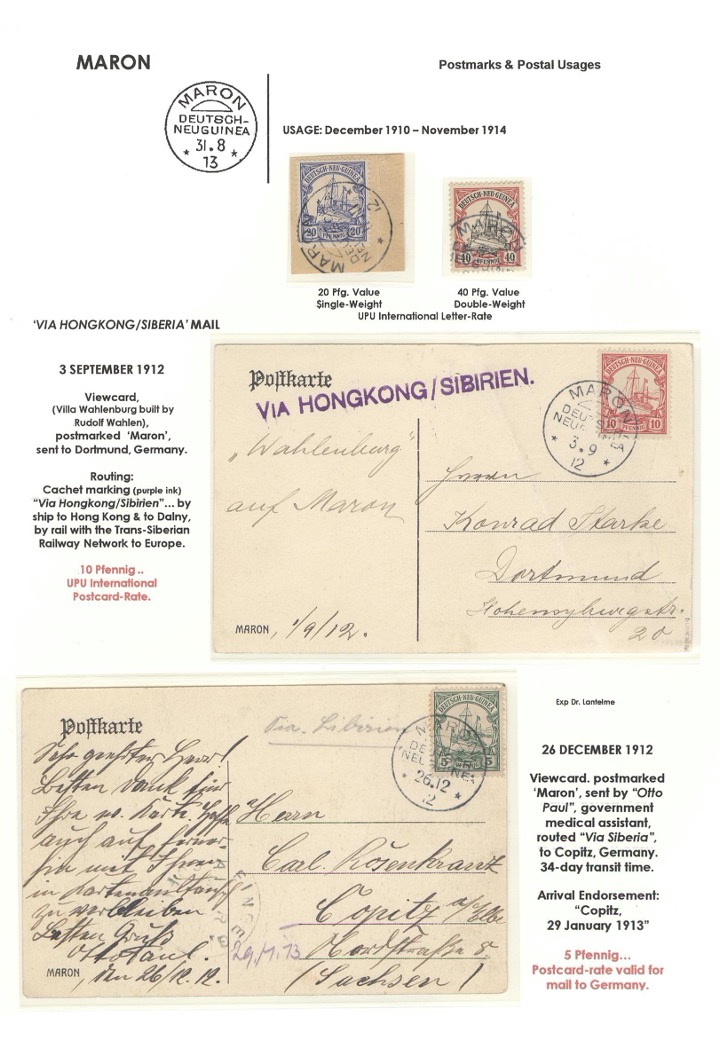 MARON
Postmarks & Postal Usages
MARON
DEUTSCH-
NEUGUINEA
31.8
13
USAGE: December 1910 – November 1914
DEUTSCH-NEU-GUINEA
20 PFENNIG 20
MARO
DEUTSCH-NEU-GUINEA
40 PFENNIG 40
MARON
20 Pfg. Value
Single-Weight
40 Pfg. Value
Double-Weight
UPU International Letter-Rate
‘VIA HONGKONG/SIBERIA’ MAIL
3 SEPTEMBER 1912
Viewcard,
(Villa Wahlenburg built by
Rudolf Wahlen),
postmarked ‘Maron’,
sent to Dortmund, Germany.
Routing:
Cachet marking (purple ink)
“Via Hongkong/Sibirien”... by
ship to Hong Kong & to Dalny,
by rail with the Trans-Siberian
Railway Network to Europe.
10 Pfennig ..
UPU International
Postcard-Rate.
Postkarte
VIA HONGKONG/SIBIRIEN.
DEUTSCH-NEU-GUINEA
10 PFENNIG 10
MARON
3.9
12
„Wahlenburg“
auf Maron
Herrn
Konrad Starke
Dortmund
20
MARON, 1/9/12.
Postkarte
Via Sibirien
DEUTSCH-NEU-GUINEA
5 5
26.12
Sehr geehrter Herr!
Besten Dank für
Ihre w. Karte. Hoffe
auch auf ferner-
hin mit Ihnen
in Kartenaustausch
zu verbleiben.
Besten Gruß
Otto Paul.
MARON, den 26/12.12.
Herrn
Carl Rosenkranz
Copitz a/Elbe
Nordstraße 5
(Sachsen)
29/1.13
Exp Dr. Lantelme
26 DECEMBER 1912
Viewcard. postmarked
‘Maron’, sent by “Otto
Paul”, government
medical assistant,
routed “Via Siberia”,
to Copitz, Germany.
34-day transit time.
Arrival Endorsement:
“Copitz,
29 January 1913”
5 Pfennig...
Postcard-rate valid for
mail to Germany.